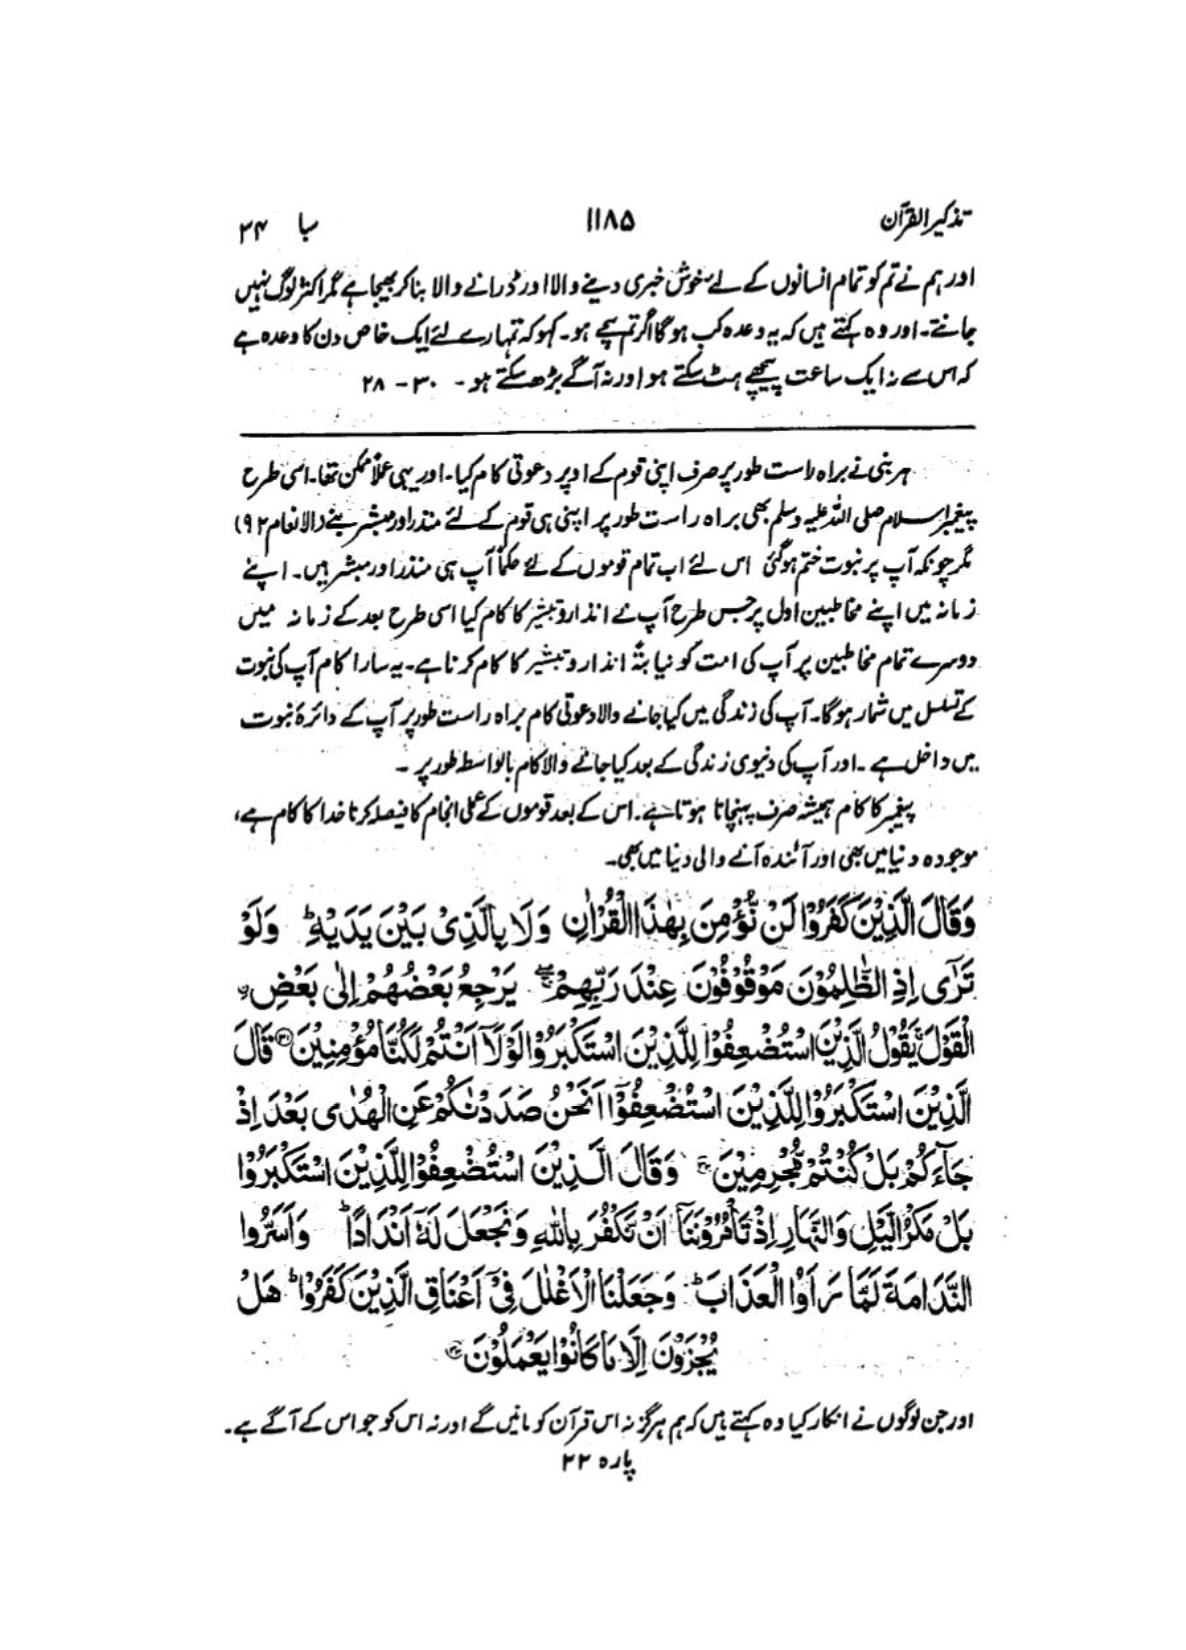 تذکیر القرآن ۱۱۸۵ سبا ۳۴
اور ہم نے تم کو تمام انسانوں کے لئے خوش خبری دینے والا اور ڈرانے والا بنا کر بھیجا ہے مگر اکثر لوگ نہیں
جانتے۔ اور وہ کہتے ہیں کہ یہ وعدہ کب ہوگا اگر تم سچے ہو۔ کہو کہ تمہارے لئے ایک خاص دن کا وعدہ ہے
کہ اس سے نہ ایک ساعت پیچھے ہٹ سکتے ہو اور نہ آگے بڑھ سکتے ہو۔ ۳۰ - ۲۸
ہر نبی نے براہ راست طور پر صرف اپنی قوم کے اوپر دعوتی کام کیا۔ اور یہی عملاً ممکن تھا۔ اسی طرح
پیغمبر اسلام صلی اللہ علیہ وسلم بھی براہ راست طور پر اپنی ہی قوم کے لئے منذر اور مبشر بنے (الانعام ۹۲)
مگر چونکہ آپ پر نبوت ختم ہوگئی اس لئے اب تمام قوموں کے لئے حکماً آپ ہی منذر اور مبشر ہیں۔ اپنے
زمانہ میں اپنے مخاطبین اول پر جس طرح آپ نے انذار و تبشیر کا کام کیا اسی طرح بعد کے زمانہ میں
دوسرے تمام مخاطبین پر آپ کی امت کو نیابۃً انذار و تبشیر کا کام کرنا ہے۔ یہ سارا کام آپ کی نبوت
کے تسلسل میں شمار ہوگا۔ آپ کی زندگی میں کیا جانے والا دعوتی کام براہ راست طور پر آپ کے دائرۂ نبوت
میں داخل ہے۔ اور آپ کی دنیوی زندگی کے بعد کیا جانے والا کام بالواسطہ طور پر۔
پیغمبر کا کام ہمیشہ صرف پہنچانا ہوتا ہے۔ اس کے بعد قوموں کے عملی انجام کا فیصلہ کرنا خدا کا کام ہے،
موجودہ دنیا میں بھی اور آئندہ آنے والی دنیا میں بھی۔
وَقَالَ الَّذِيْنَ كَفَرُوْا لَنْ نُّؤْمِنَ بِهٰذَا الْقُرْاٰنِ وَلَا بِالَّذِيْ بَيْنَ يَدَيْهِ ؕ وَلَوْ
تَرٰٓى اِذِ الظّٰلِمُوْنَ مَوْقُوْفُوْنَ عِنْدَ رَبِّهِمْ ۖۚ يَرْجِعُ بَعْضُهُمْ اِلٰى بَعْضِ ِۨ
الْقَوْلَ ۚ يَقُوْلُ الَّذِيْنَ اسْتُضْعِفُوْا لِلَّذِيْنَ اسْتَكْبَرُوْا لَوْلَاۤ اَنْتُمْ لَكُنَّا مُؤْمِنِيْنَ ۳۱ قَالَ
الَّذِيْنَ اسْتَكْبَرُوْا لِلَّذِيْنَ اسْتُضْعِفُوْۤا اَنَحْنُ صَدَدْنٰكُمْ عَنِ الْهُدٰى بَعْدَ اِذْ
جَآءَكُمْ بَلْ كُنْتُمْ مُّجْرِمِيْنَ ۳۲ وَقَالَ الَّذِيْنَ اسْتُضْعِفُوْا لِلَّذِيْنَ اسْتَكْبَرُوْا
بَلْ مَكْرُ الَّيْلِ وَالنَّهَارِ اِذْ تَاْمُرُوْنَنَاۤ اَنْ نَّكْفُرَ بِاللّٰهِ وَنَجْعَلَ لَهٗۤ اَنْدَادًا ؕ وَاَسَرُّوا
النَّدَامَةَ لَمَّا رَاَوُا الْعَذَابَ ؕ وَجَعَلْنَا الْاَغْلٰلَ فِيْۤ اَعْنَاقِ الَّذِيْنَ كَفَرُوْا ؕ هَلْ
يُجْزَوْنَ اِلَّا مَا كَانُوْا يَعْمَلُوْنَ ۳۳
اور جن لوگوں نے انکار کیا وہ کہتے ہیں کہ ہم ہرگز نہ اس قرآن کو مانیں گے اور نہ اس کو جو اس کے آگے ہے۔
پارہ ۲۲